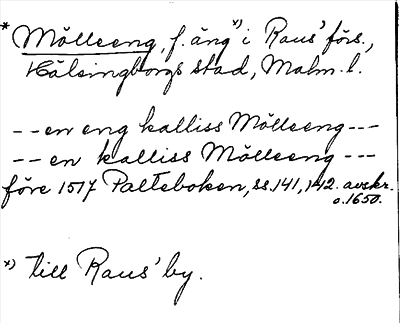 * Mölleeng, f. äng *) i Raus' förs.,
Hälsingborgs stad, Malm. l.
-- en eng kalliss Mölleeng ---
-- en kalliss Mölleeng ---
före 1517 Palteboken, ss. 141, 142. avskr.
o. 1650.
*) till Raus' by.